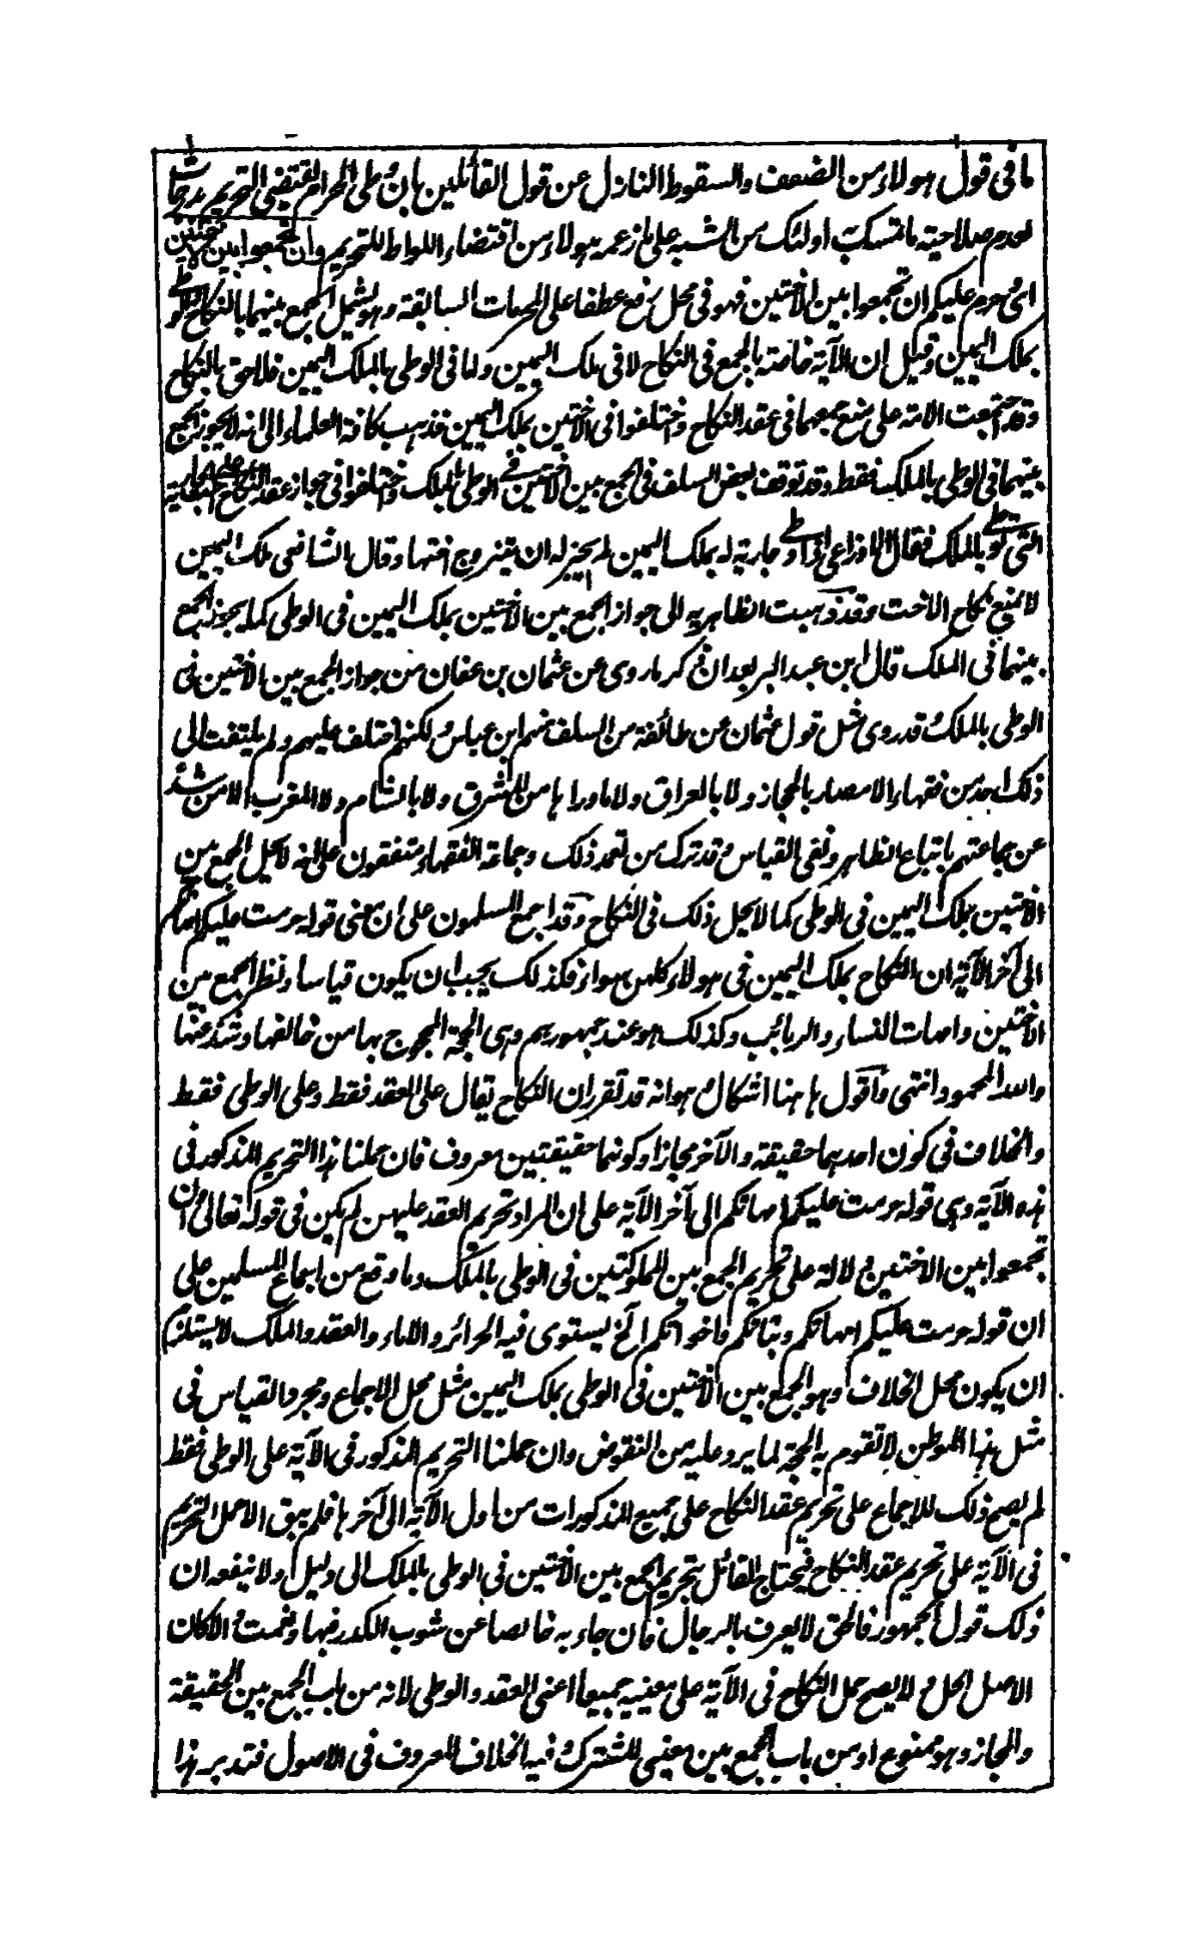 ما فى قول هولاء من الضعف والسقوط النازل عن قول القائلين بان وطى الحرام يقتضى التحريم بدرجات
لعدم صلاحيته ما تمسك به اولئك من الشبه على ما زعمه هولاء من اقتضاء اللواط للتحريم وان تجمعوا بين الاختين
اى حرم عليكم ان تجمعوا بين الاختين فهو فى محل رفع عطفا على المحرمات السابقة وهو يشمل الجمع بينهما بالنكاح والوطى
بملك اليمين وقيل ان الآية خاصة بالجمع فى النكاح لا فى ملك اليمين واما فى الوطى بالملك اليمين فلاحق بالنكاح
وقد اجتمعت الامة على منع جمعهما فى عقد النكاح واختلفوا فى الاختين بملك اليمين فذهب كافة العلماء الى انه لا يجوز الجمع
بينهما فى الوطى بالملك فقط وقد توقف بعض السلف فى الجمع بين الاختين فى الوطى بالملك واختلفوا فى جواز عقد النكاح على اخت الجارية
التى توطى بالملك فقال الاوزاعى اذا وطى جارية له بملك اليمين لم يجز له ان يتزوج اختها وقال الشافعى ملك اليمين
لا يمنع نكاح الاخت وقد ذهبت الظاهرية الى جواز الجمع بين الاختين بملك اليمين فى الوطى كما يجوز الجمع
بينهما فى الملك قال ابن عبد البر بعد ان ذكر ما روى عن عثمان بن عفان من جواز الجمع بين الاختين فى
الوطى بالملك قد روى مثل قول عثمان عن طائفة من السلف منهم ابن عباس لكنهم اختلف عليهم ولم يلتفت الى
ذلك احد من فقهاء الامصار بالحجاز ولا بالعراق ولا ما وراءها من المشرق ولا بالشام ولا المغرب الا من شذ
عن جماعتهم باتباع الظاهر ونفى القياس وقد ترك من تعمد ذلك وجماعة الفقهاء متفقون على انه لا يحل الجمع بين
الاختين بملك اليمين فى الوطى كما لا يحل ذلك فى النكاح وقد اجمع المسلمون على ان معنى قوله حرمت عليكم امهاتكم
الى آخر الآية ان النكاح بملك اليمين فى هولاء كلهن سواء فكذلك يجب ان يكون قياسا ونظرا الجمع بين
الاختين وامهات النساء والربائب وكذلك هو عند جمهورهم وهى الحجة المحجوج بها من خالفها وشذ عنها
والله المحمود انتهى واقول هاهنا اشكال وهو انه قد تقرر ان النكاح يقال على العقد فقط وعلى الوطى فقط
والخلاف فى كون احدهما حقيقة والآخر مجازا او كونهما حقيقتين معروف فان حملنا هذا التحريم المذكور فى
هذه الآية وهى قوله حرمت عليكم امهاتكم الى آخر الآية على ان المراد تحريم العقد عليهن لم يكن فى قوله تعالى وان
تجمعوا بين الاختين دلالة على تحريم الجمع بين المملوكتين فى الوطى بالملك وما وقع من اجماع المسلمين على
ان قوله حرمت عليكم امهاتكم وبناتكم واخواتكم الخ يستوى فيه الحرائر والاماء والعقد والملك لا يستلزم
ان يكون محل الخلاف وهو الجمع بين الاختين فى الوطى بملك اليمين مثل محل الاجماع ومجرد القياس فى
مثل هذا الموطن لا تقوم به الحجة لما يرد عليه من النقوض وان حملنا التحريم المذكور فى الآية على الوطى فقط
لم يصح ذلك للاجماع على تحريم عقد النكاح على جميع المذكورات من اول الآية الى آخرها فلم يبق الا حمل التحريم
فى الآية على تحريم عقد النكاح فيحتاج القائل بتحريم الجمع بين الاختين فى الوطى بالملك الى دليل ولا ينفعه ان
ذلك قول الجمهور فالحق لا يعرف بالرجال فان جاء به خالصا عن شوب الكدر فبها ونعمت والا كان
الاصل الحل ولا يصح حمل النكاح فى الآية على معنييه جميعا اعنى العقد والوطى لانه من باب الجمع بين الحقيقة
والمجاز وهو ممنوع او من باب الجمع بين معنيى المشترك وفيه الخلاف المعروف فى الاصول فتدبر هذا